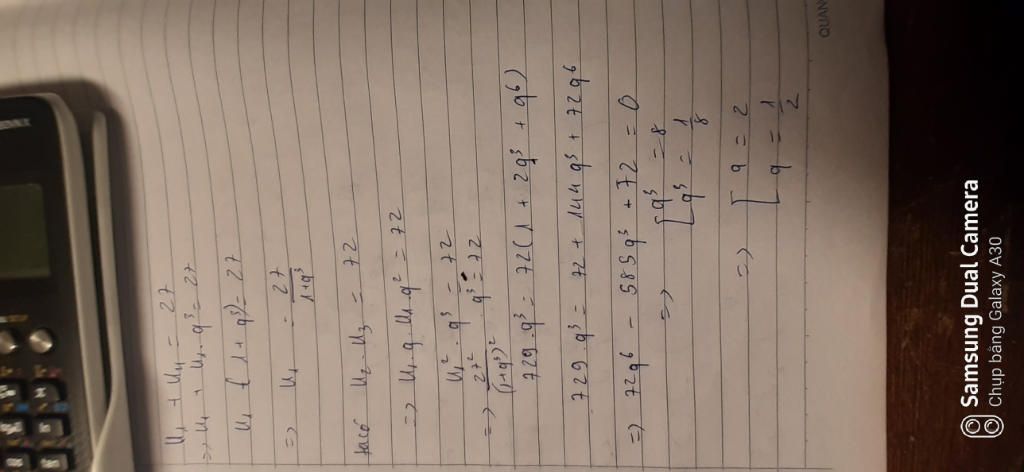 u₁ + u₄ = 27
=> u₁ + u₁.q³ = 27
u₁ (1+q³) = 27
=> u₁ = 27/(1+q³)
taco u₂.u₃ = 72
=> u₁.q.u₁.q² = 72
u₁².q³ = 72
=> 27²/(1+q³)².q³ = 72
729.q³ = 72(1 + 2q³ + q⁶)
729.q³ = 72 + 144q³ + 72q⁶
=> 72q⁶ - 585q³ + 72 = 0
=> [q³ = 8
q³ = 1/8
=> [q = 2
q = 1/2
QUAN
Samsung Dual Camera
Chụp bằng Galaxy A30
tan